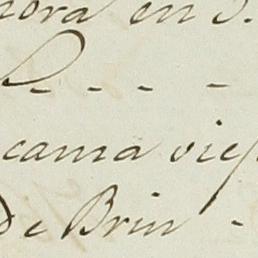 nora en S.
- - - -
cama viej
de Brin -